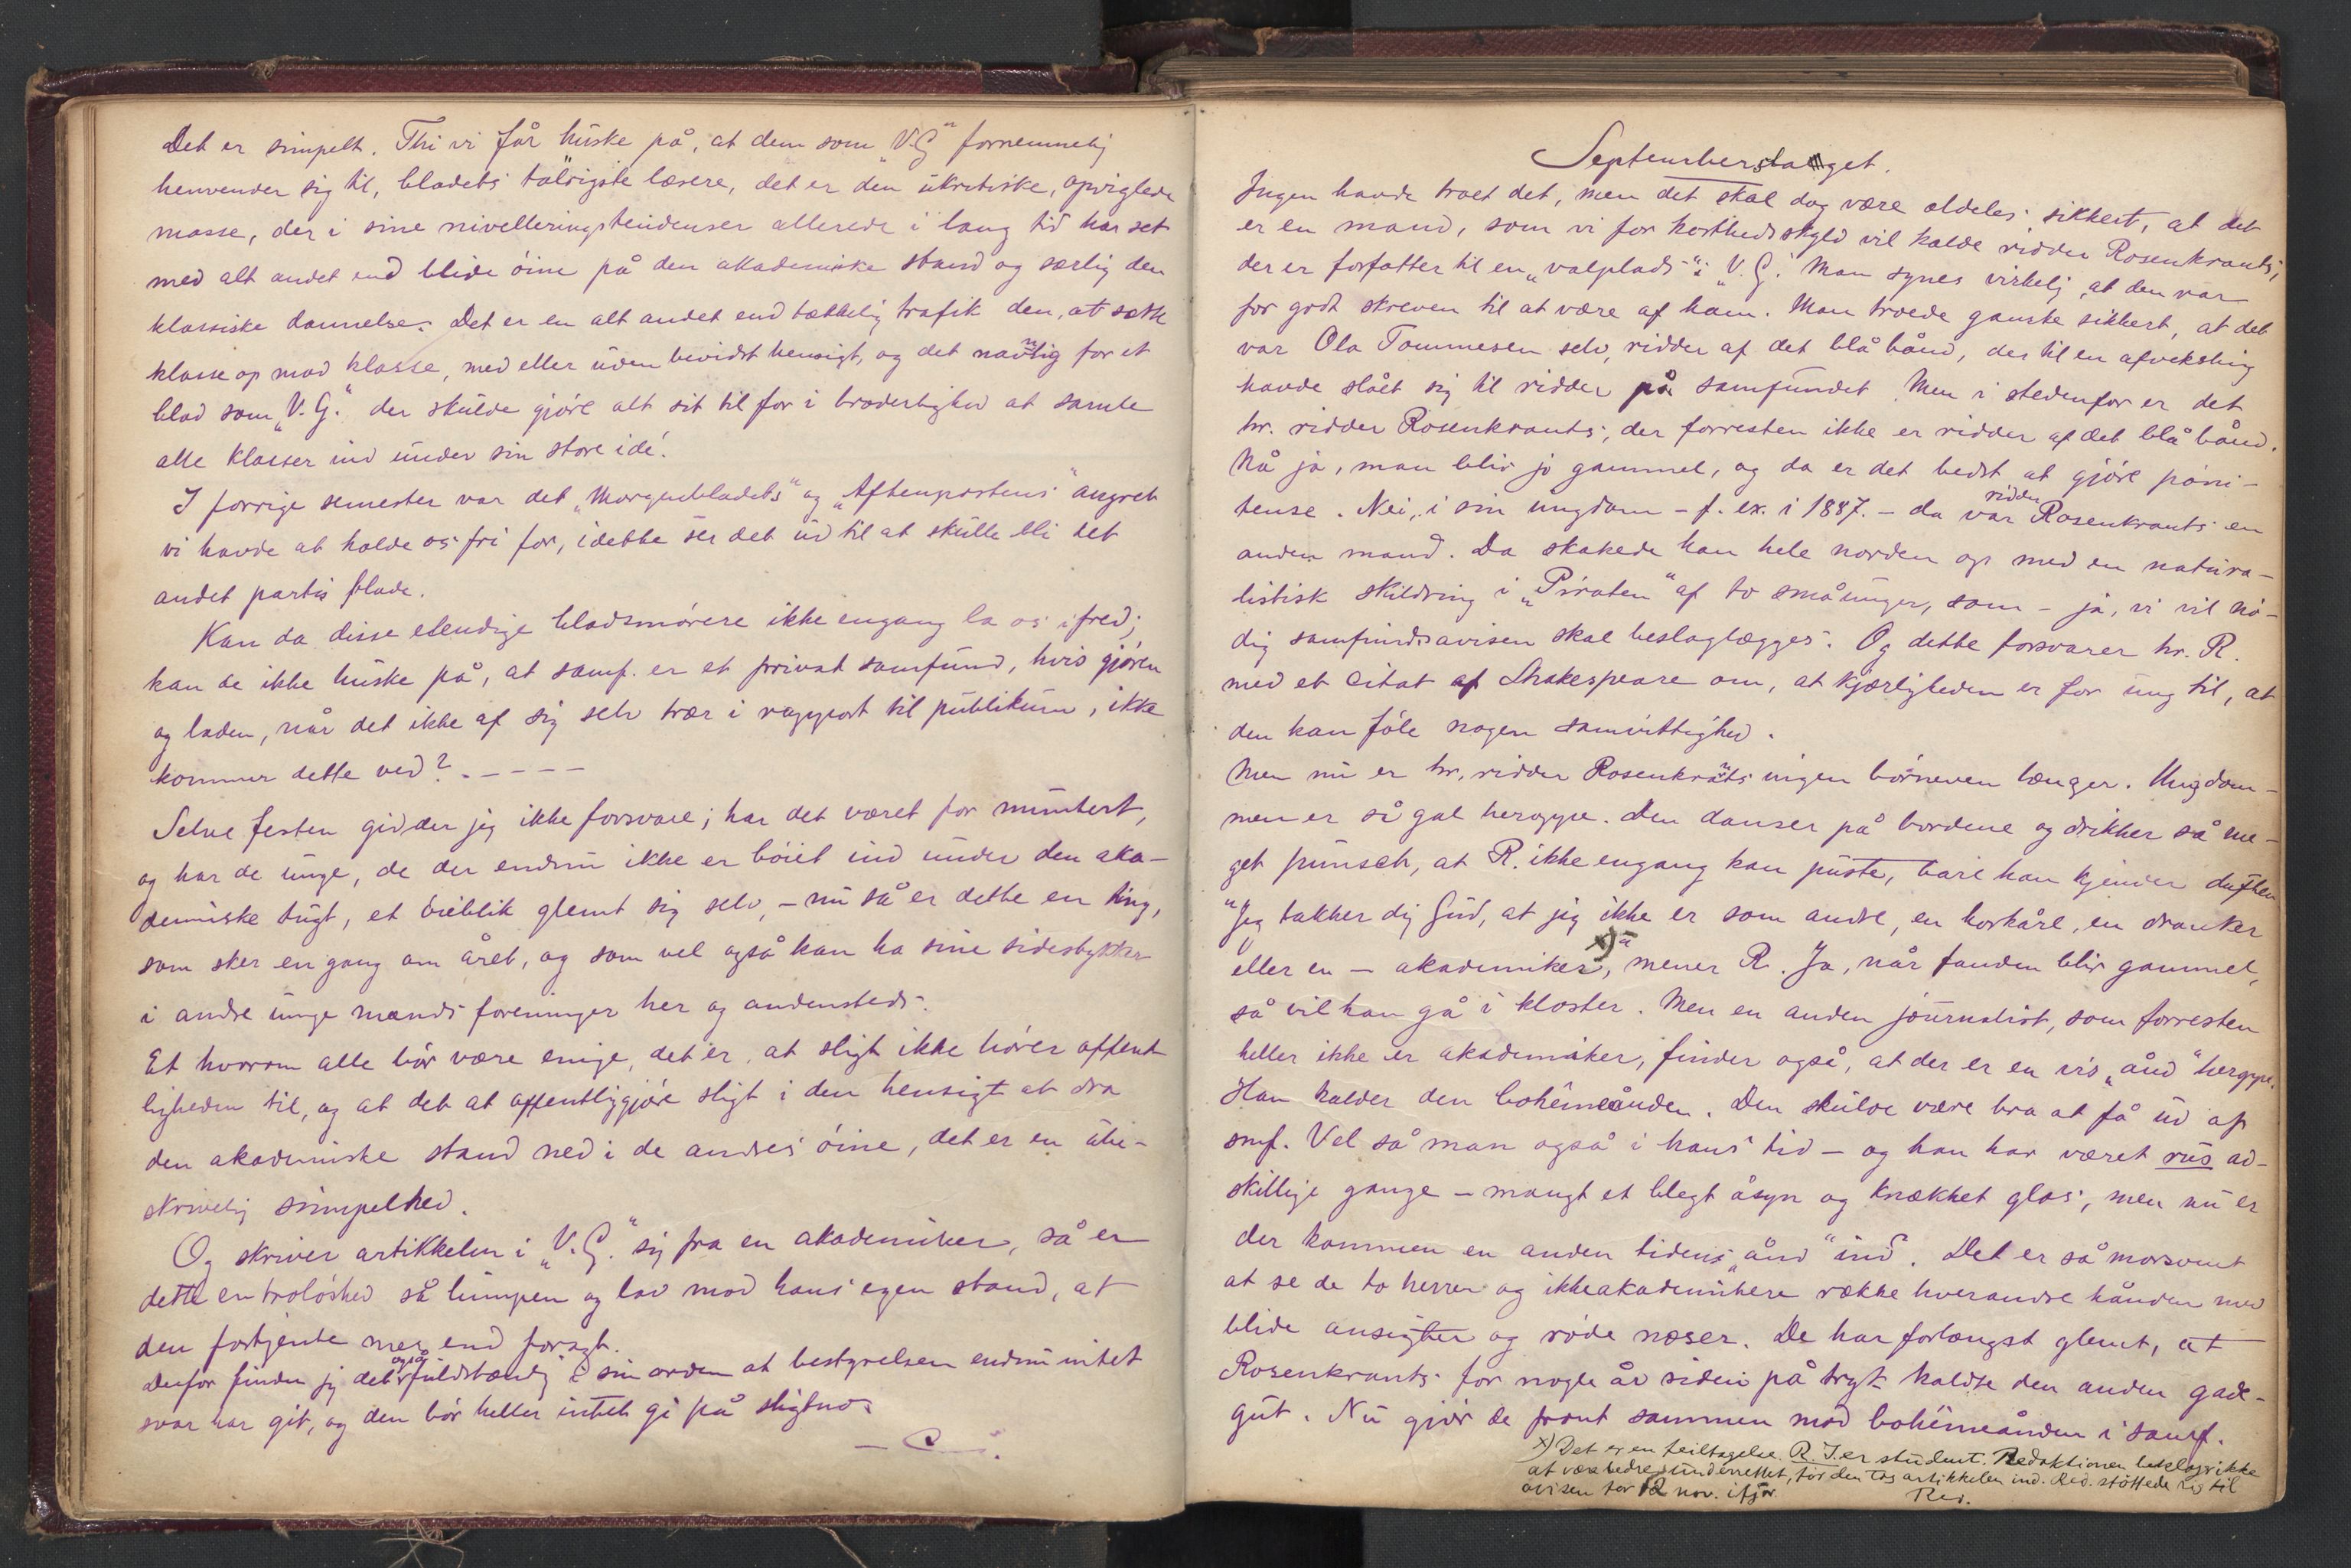 Det er simpelt. Thi vi får huske på, at dem som "V.G" fornemmelig
henvender sig til, bladets talrigste læsere, det er den ukritiske, opviglede
masse, der i sine nivelleringstendenser allerede i lang tid har set
med alt andet end blide öine på den akademiske stand og særlig den
klassiske dannelse. Det er en alt andet end tækkelig trafik den, at sætte
klasse op mod klasse, med eller uden bevidst hensigt, og det navnlig for et
blad som "V.G." der skulde gjöre alt sit til for i broderlighed at samle
alle klasser ind under sin store idé!
I forrige semester var det "Morgenbladets" og "Aftenpostens" angreb
vi havde at holde os fri for, i dette ser det ud til at skulle bli det
andet partis blade.
Kan da disse elendige bladsmörere ikke engang la os i fred;
kan de ikke huske på, at samf. er et privat samfund, hvis gjören
og laden, når det ikke af sig selv trær i rapport til publikum, ikke
kommer dette ved? - - - - -
Selve festen gidder jeg ikke forsvare; har det været for muntert,
og har de unge, de der endnu ikke er böiet ind under den aka-
demiske tugt, et öieblik glemt sig selv, - nu så er dette en ting,
som sker en gang om året, og som vel også kan ha sine sidestykker
i andre unge mænds foreninger her og andensteds.
Et hvorom alle bör være enige, det er, at sligt ikke hörer offent-
ligheden til, og at det at offentliggjöre sligt i den hensigt at dra
den akademiske stand ned i de andres öine, det er en ube-
skrivelig simpelhed.
Og skriver artikkelen i "V.G." sig fra en akademiker, så er
dette en trolöshed så lumpen og lav mod hans egen stand, at
den fortjente mer end foragt.
Derfor finder jeg det også fuldstændig i sin orden at bestyrelsen endnu intet
svar har git, og den bör heller intet gi på sligt.
Septemberslaget.
Ingen havde troet det, men det skal dog være aldeles sikkert, at det
er en mand, som vi for korthedsskyld vil kalde ridder Rosenkrants,
der er forfatter til en "valplads" i "V.G." Man synes virkelig, at den var
for godt skreven til at være af ham. Man troede ganske sikkert, at det
var Ola Tommesen selv, ridder af det blå bånd, der til en afveksling
havde slået sig til ridder på samfundet. Men i stedenfor er det
hr. ridder Rosenkrants, der forresten ikke er ridder af det blå bånd.
Nå ja, man blir jo gammel, og da er det bedst at gjöre pöni-
tense. Nei, i sin ungdom - f. ex. i 1887. - da var ridder Rosenkrants en
anden mand. Da skakede han hele norden op med en natura-
listisk skildring i "Piraten" af to småunger, som - ja, vi vil nö-
dig samfundsavisen skal beslaglægges. Og dette forsvarer hr. R.
med et citat af Shakespeare om, at kjærligheden er for ung til, at
den kan föle nogen samvittighed.
Men nu er hr. ridder Rosenkrants ingen börneven længer. Ungdom-
men er så gal heroppe. Den danser på bordene og drikker så me-
get punsch, at R. ikke engang kan puste, bare han kjender duften
"Jeg takker dig Gud, at jeg ikke er som andre, en horkarl, en dranker
eller en - akademiker", x) mener R. Ja, når fanden blir gammel,
så vil han gå i kloster. Men en anden journalist, som forresten
heller ikke er akademiker, finder også, at der er en vis "ånd" heroppe.
Han kalder den bohêmeånden. Den skulde være bra at få ud af
smf. Vel så man også i hans tid - og han har været rus ad-
skillige gange - mangt et blegt åsyn og knækket glas, men nu er
der kommen en anden tidens "ånd" ind. Det er så morsomt
at se de to herrer og ikkeakademikere række hverandre hånden med
blide ansigter og röde næser. De har forlængst glemt, at
Rosenkrants for nogle år siden på tryk kaldte den anden gade-
gut. Nu gjör de front sammen mod bohêmeånden i samf.
x) Det er en feiltagelse. R. I. er student. Redaktionen ikke
at være bedre underrettet, för den tog artikkelen ind. Red. støttede sig til
avisen for 12 nov. ifjor.
Red.